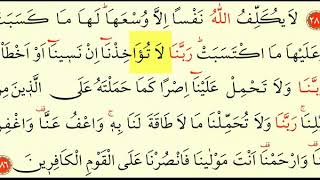 لَا يُكَلِّفُ اللّٰهُ نَفْسًا اِلَّا وُسْعَهَاؕ لَهَا مَا كَسَبَتْ ٢٨
عَلَيْهَا مَا اكْتَسَبَتْؕ رَبَّنَا لَا تُؤَاخِذْنَآ اِنْ نَسِينَآ اَوْ اَخْطَاْ
بَّنَا وَلَا تَحْمِلْ عَلَيْنَآ اِصْرًا كَمَا حَمَلْتَهُ عَلَى الَّذِينَ مِنْ
لِنَاۚ رَبَّنَا وَلَا تُحَمِّلْنَا مَا لَا طَاقَةَ لَنَا بِهۚ وَاعْفُ عَنَّاࣞ وَاغْفِرْ
نَاࣞ وَارْحَمْنَاࣞ اَنْتَ مَوْلٰينَا فَانْصُرْنَا عَلَى الْقَوْمِ الْكَافِرِينَ ٨٦